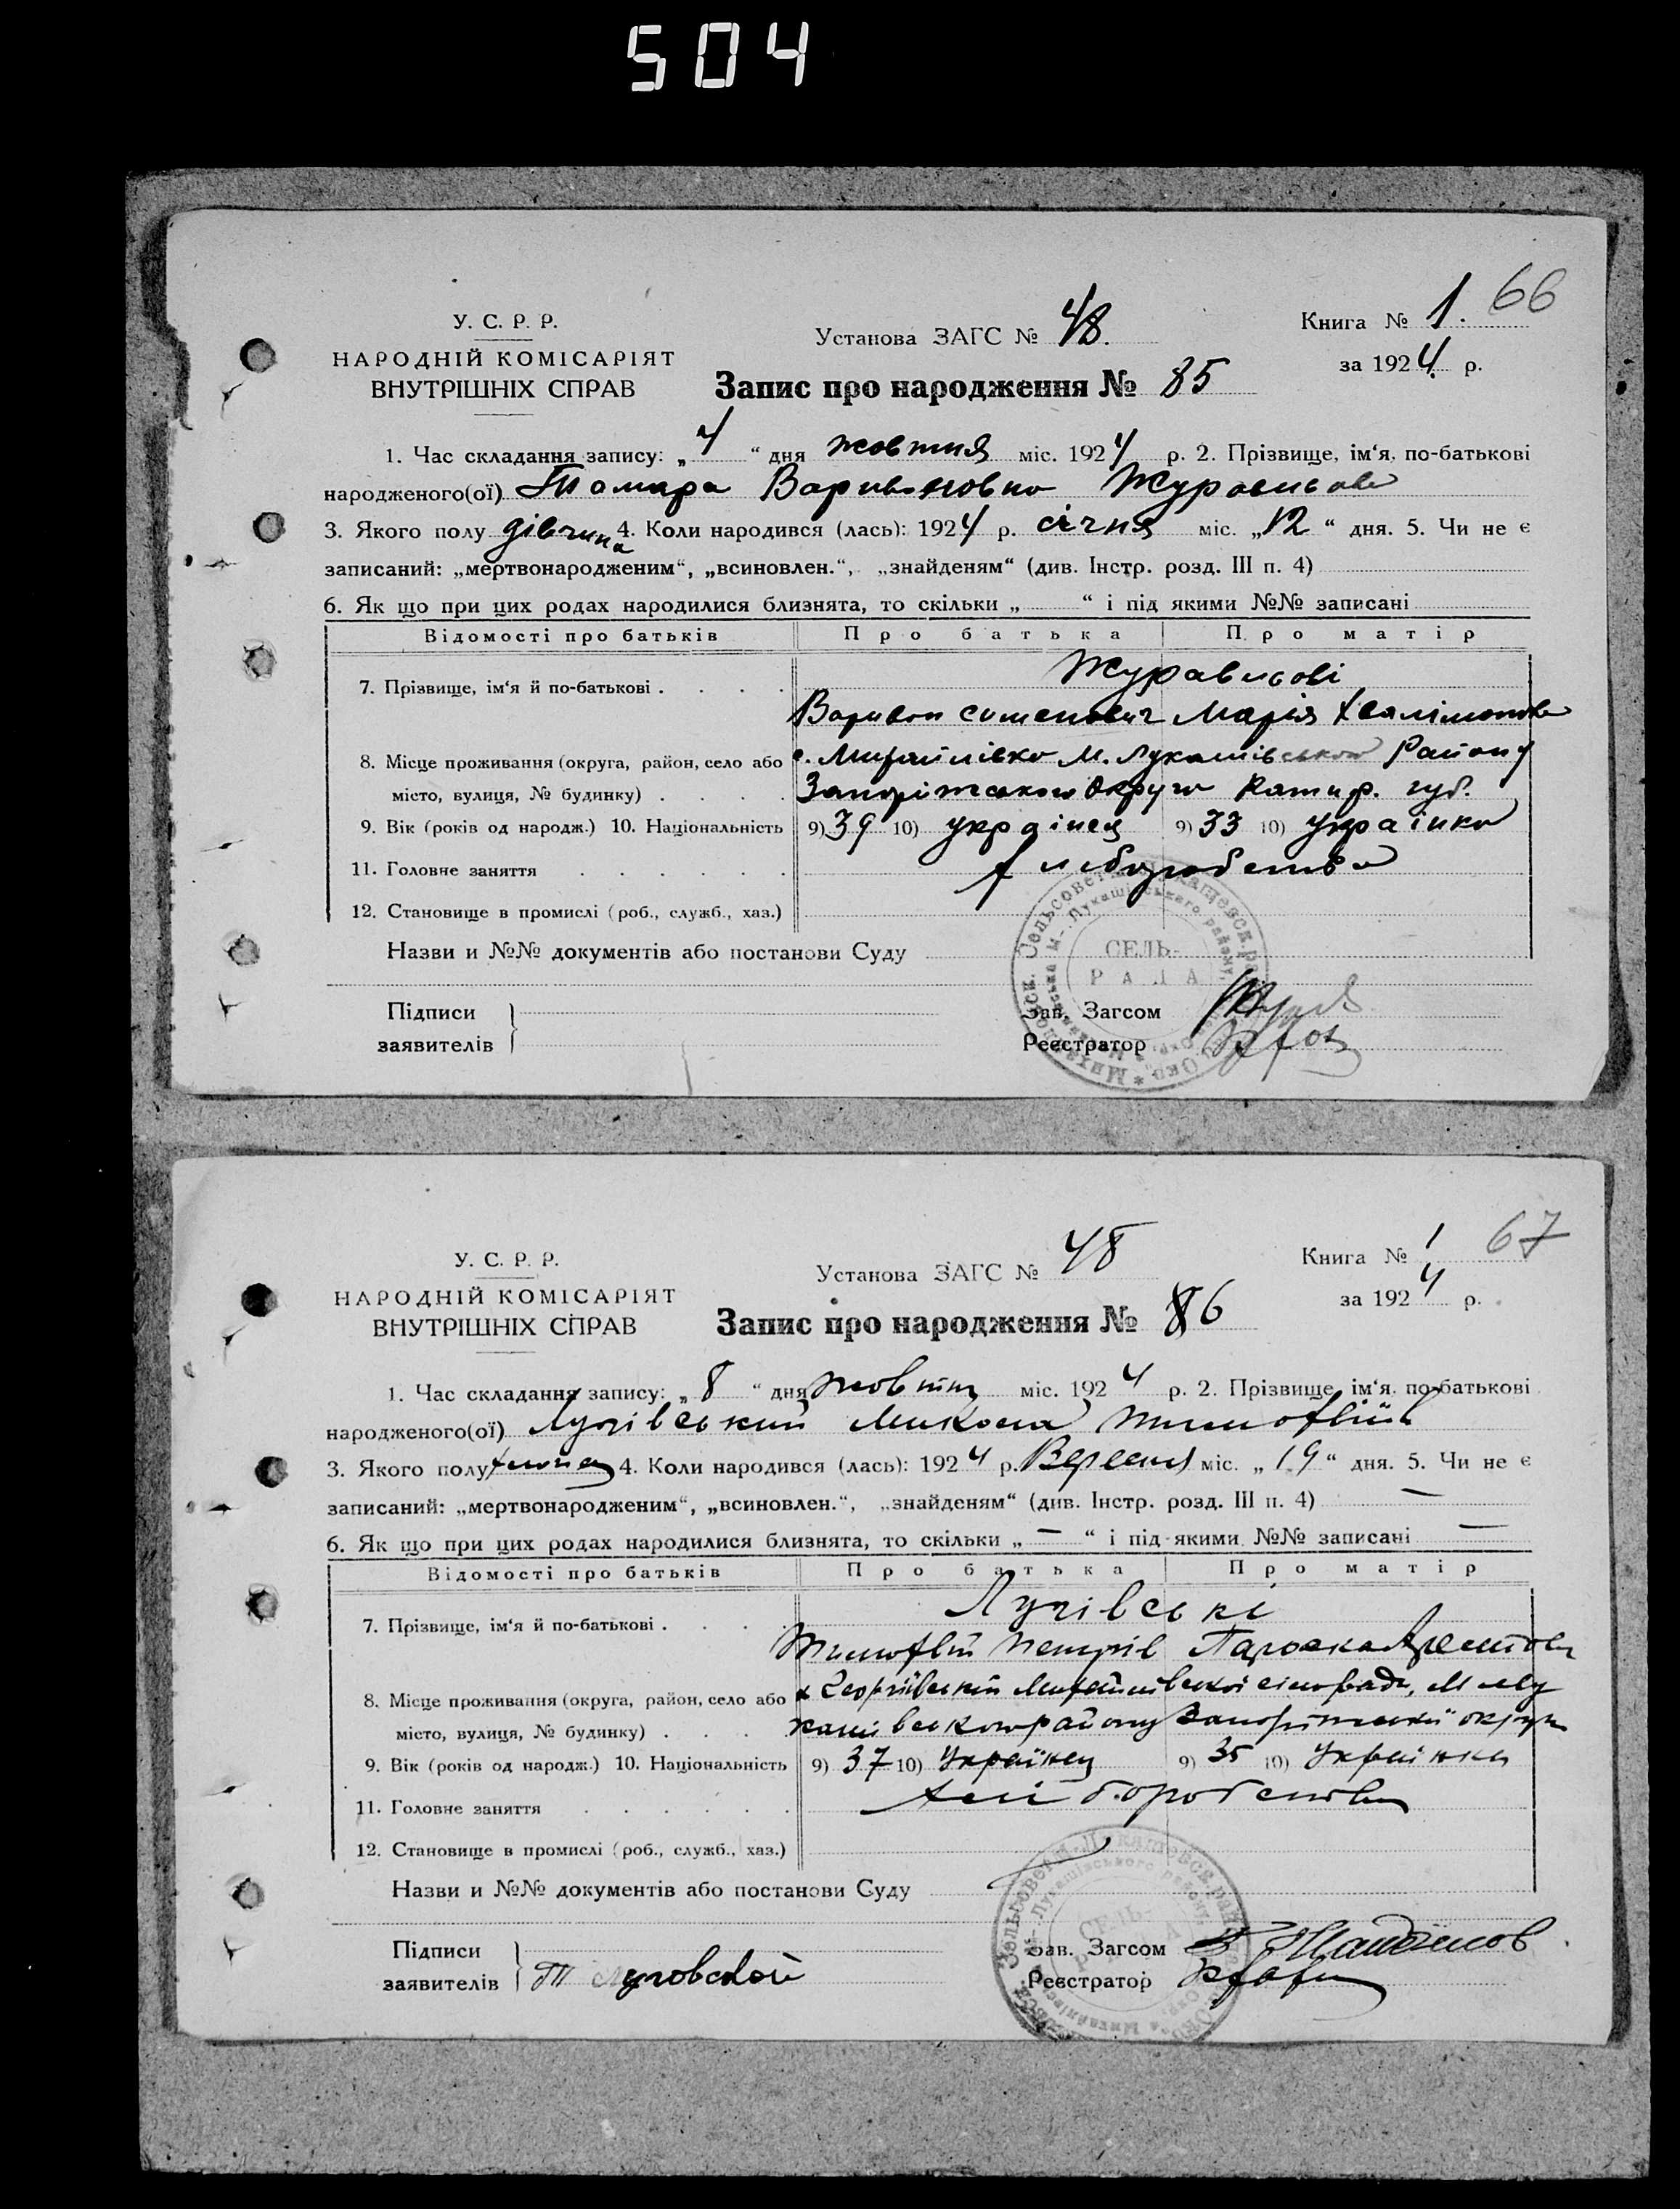 504
66
У. С. Р. Р.
НАРОДНІЙ КОМІСАРІЯТ
ВНУТРІШНІХ СПРАВ
Установа ЗАГС № 48.
Книга № 1.
за 1924 р.
Запис про народження № 85
1. Час складання запису: „ 4 “ дня жовтня міс. 1924 р. 2. Прізвище, ім‘я, по-батькові
народженого(ої) Тамара Варивоновна Журавльова
3. Якого полу дівчина 4. Коли народився (лась): 1924 р. січня міс. „12“ дня. 5. Чи не є
записаний: „мертвонародженим“, „всиновлен.“, „знайденям“ (див. Інстр. розд. III п. 4)
6. Як що при цих родах народилися близнята, то скільки „ “ і під якими №№ записані
Відомості про батьків Про батька Про матір
7. Прізвище, ім‘я й по-батькові . . . . Журавльові
Варивон Марія
8. Місце проживання (округа, район, село або с. Михайлівка М. Лукашівського Району
місто, вулиця, № будинку) . . . . Запоріжського Округу Катир. губ.
9. Вік (років од народж.) 10. Національність 9) 39 10) українец 9) 33 10) українка
11. Головне заняття . . . . . . хліборобство
12. Становище в промислі (роб., служб., хаз.)
Назви и №№ документів або постанови Суду
СЕЛЬ-
РАДА
Підписи
заявителів
Зав. Загсом
Реєстратор
67
У. С. Р. Р.
НАРОДНІЙ КОМІСАРІЯТ
ВНУТРІШНІХ СПРАВ
Установа ЗАГС № 48
Книга № 1
за 1924 р.
Запис про народження № 86
1. Час складання запису: „ 8 “ дня жовтня міс. 1924 р. 2. Прізвище, ім‘я, по-батькові
народженого(ої) Лугівський Микола Тимофвіїв
3. Якого полу хлопец 4. Коли народився (лась): 1924 р. Вересня міс. „19“ дня. 5. Чи не є
записаний: „мертвонародженим“, „всиновлен.“, „знайденям“ (див. Інстр. розд. III п. 4) —
6. Як що при цих родах народилися близнята, то скільки „ — “ і під якими №№ записані —
Відомості про батьків Про батька Про матір
7. Прізвище, ім‘я й по-батькові . . . . Лугівські
Тимофвій Петрів Параска
8. Місце проживання (округа, район, село або х Георгіївський Михайлівської сільради, М Лу
місто, вулиця, № будинку) . . . кашівського району Запоріжської округи
9. Вік (років од народж.) 10. Національність 9) 37 10) Українец 9) 35 10) Українка
11. Головне заняття . . . . . . хліборобство
12. Становище в промислі (роб., служб., хаз.)
Назви и №№ документів або постанови Суду
СЕЛЬ-
Підписи
заявителів Т Луговской
Зав. Загсом
Реєстратор